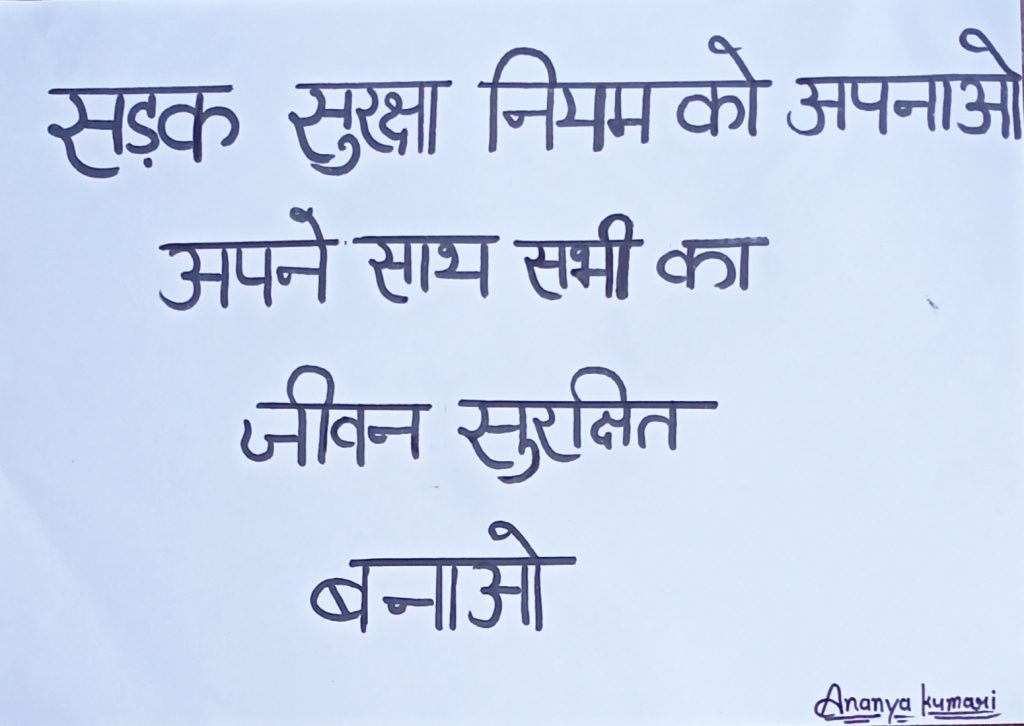 सड़क सुरक्षा नियम को अपनाओ
अपने साथ सभी का
जीवन सुरक्षित
बनाओ
Ananya kumari